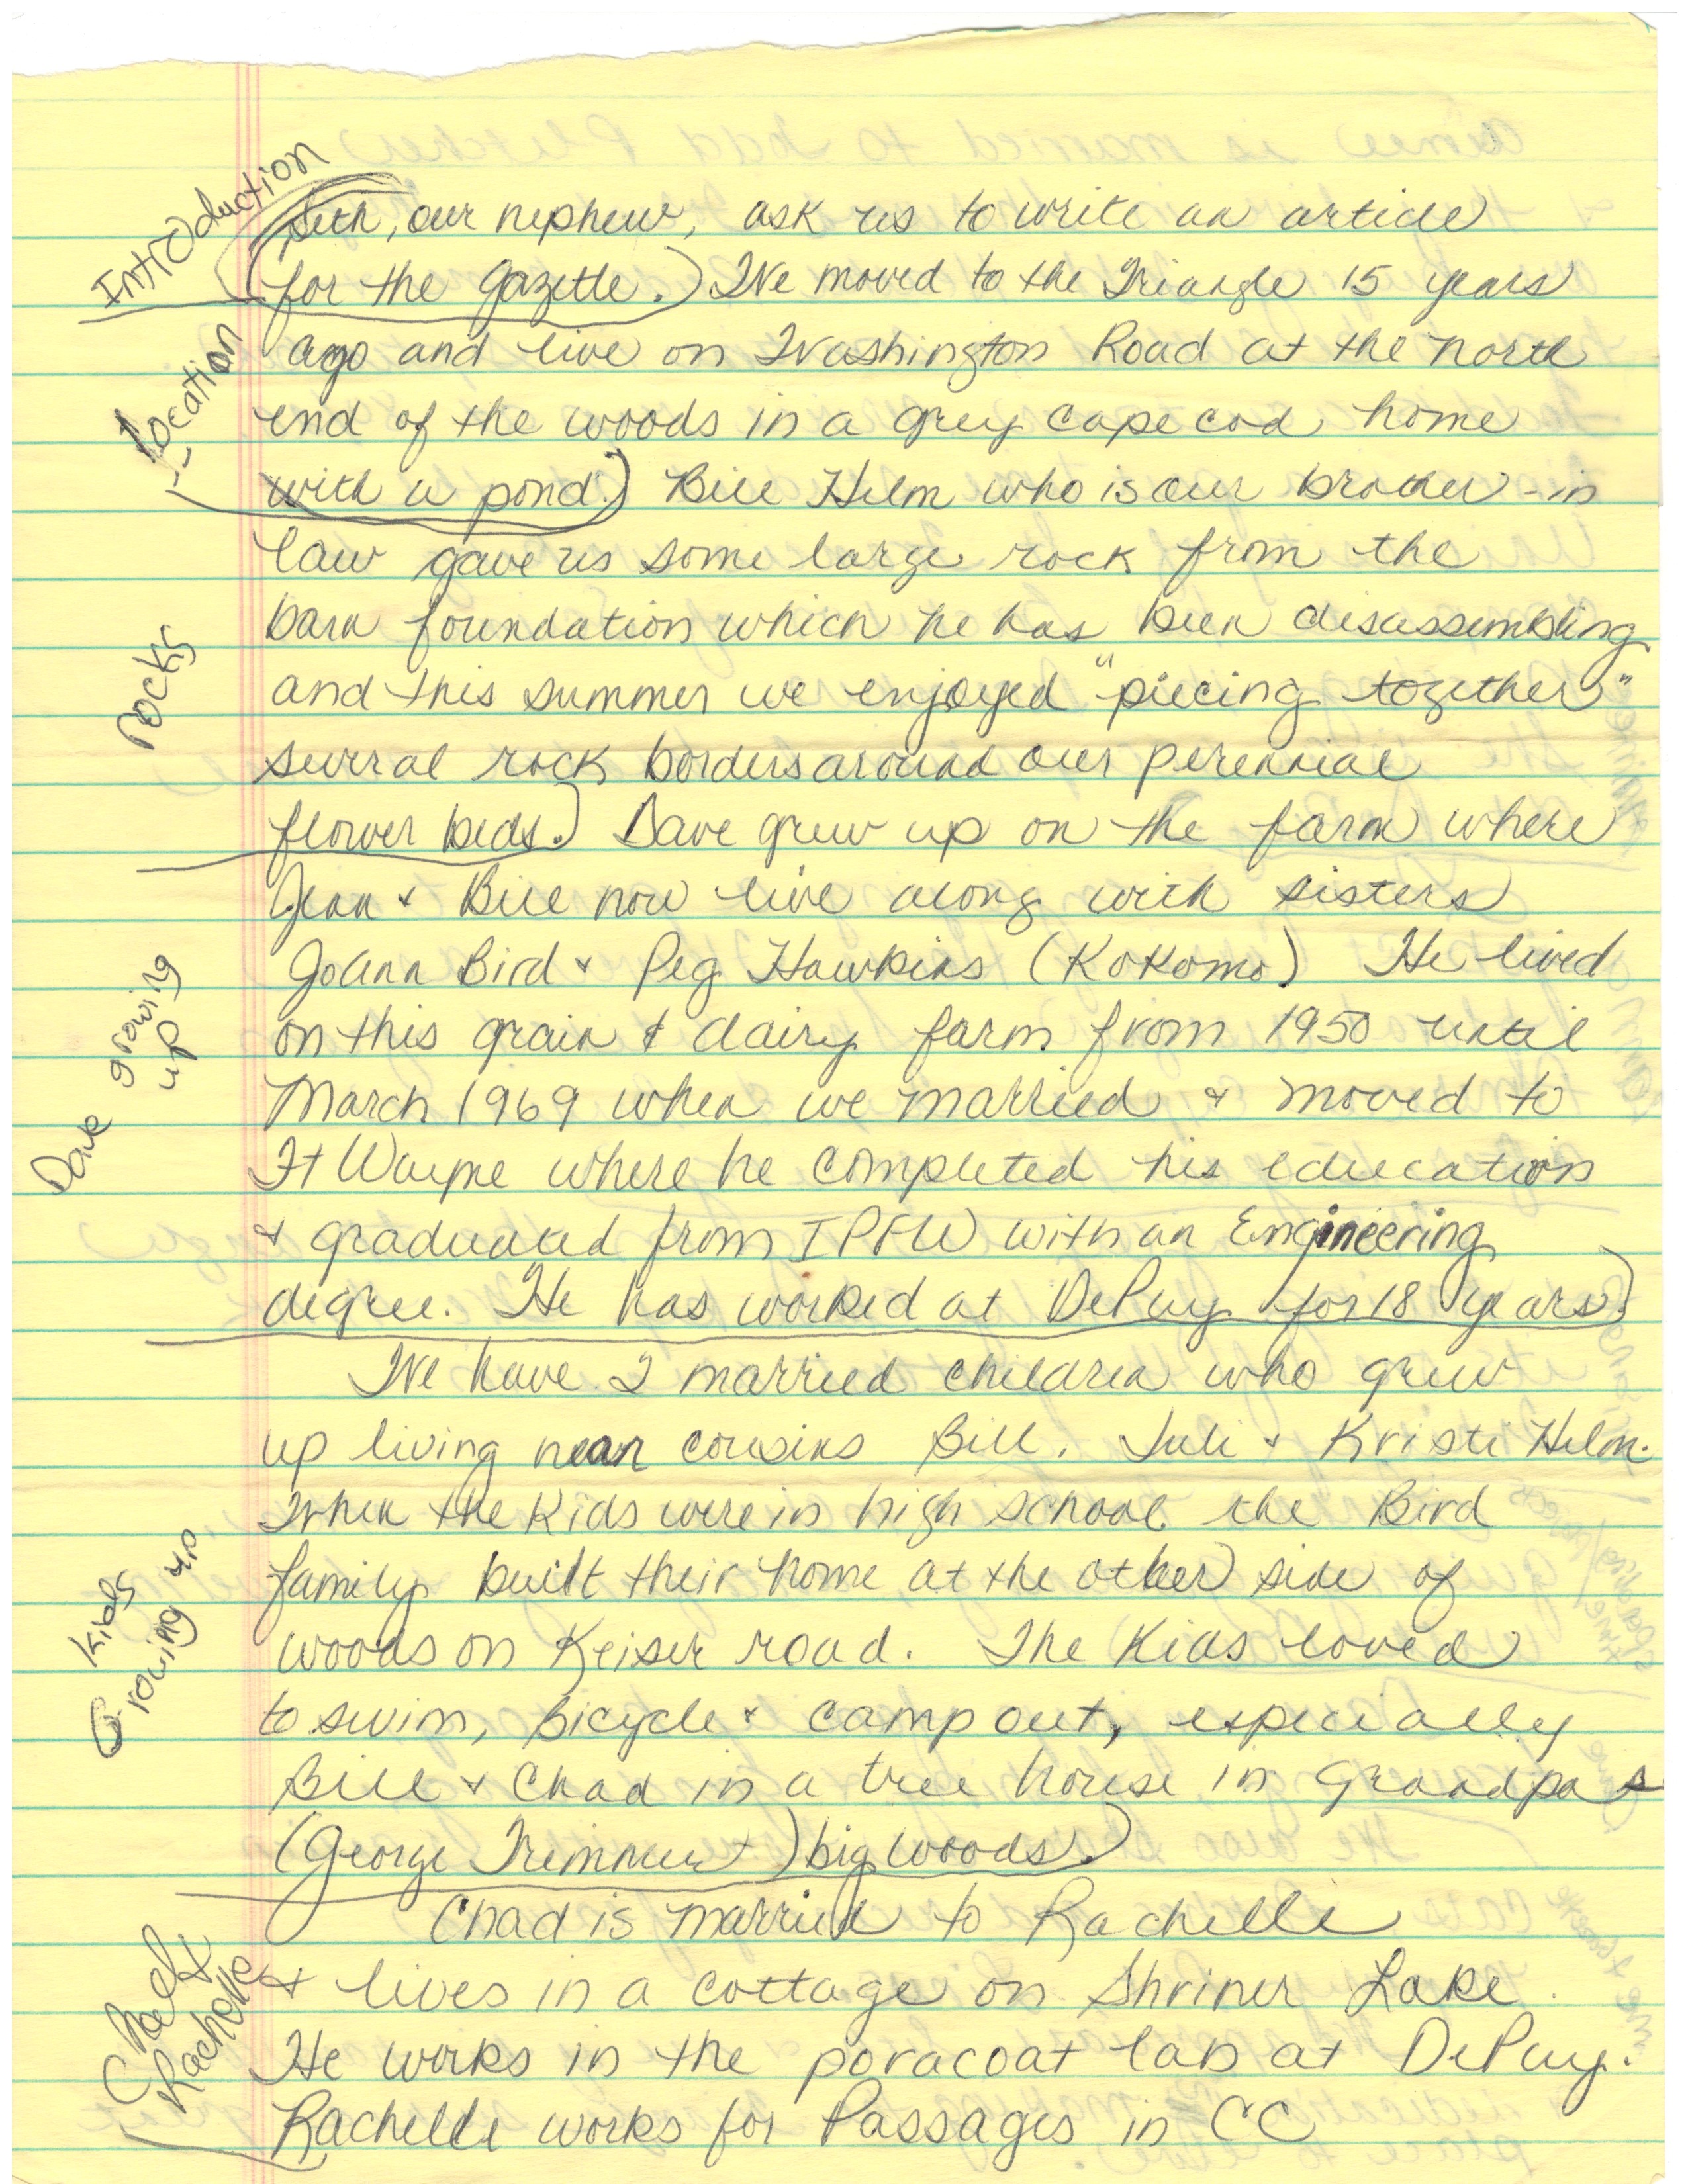 Introduction
(Seth, our nephew, ask us to write an article
for the Gazette.) We moved to the Triangle 15 years
ago and live on Washington Road at the north
Location
end of the woods in a grey cape cod home
with a pond.) Bill Helm who is our brother-in
law gave us some large rock from the
barn foundation which he has been disassembling
Rocks
and this summer we enjoyed "piecing together"
several rock borders around our perennial
flower beds.) Dave grew up on the farm where
Jean & Bill now live along with sisters
JoAnn Bird & Peg Hawkins (Kokomo) He lived
Dave growing up
on this grain & dairy farm from 1950 until
March 1969 when we married & moved to
Ft Wayne where he completed his education
& graduated from IPFW with an Engineering
degree. He has worked at DePuy for 18 years.)
We have 2 married children who grew
up living near cousins Bill, Juli & Kristi Helm.
When the kids were in high school the Bird
family built their home at the other side of
Kids Growing up
woods on Keiser road. The Kids loved
to swim, bicycle & camp out, especially
Bill & Chad in a tree house in Grandpas
(George Trimmer) big woods.)
Chad is married to Rachelle
Chad & Rachelle
& lives in a cottage on Shriner Lake.
He works in the poracoat lab at DePuy.
Rachelle works for Passages in CC